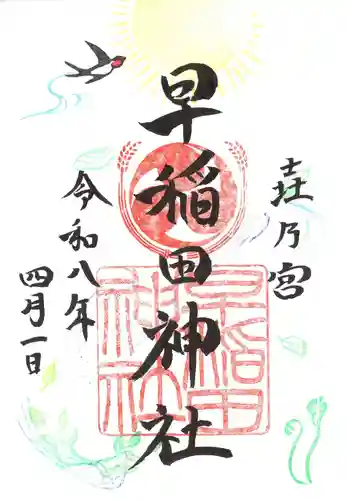 壵乃宮
早稲田神社
早稲田神社
令和八年
四月一日